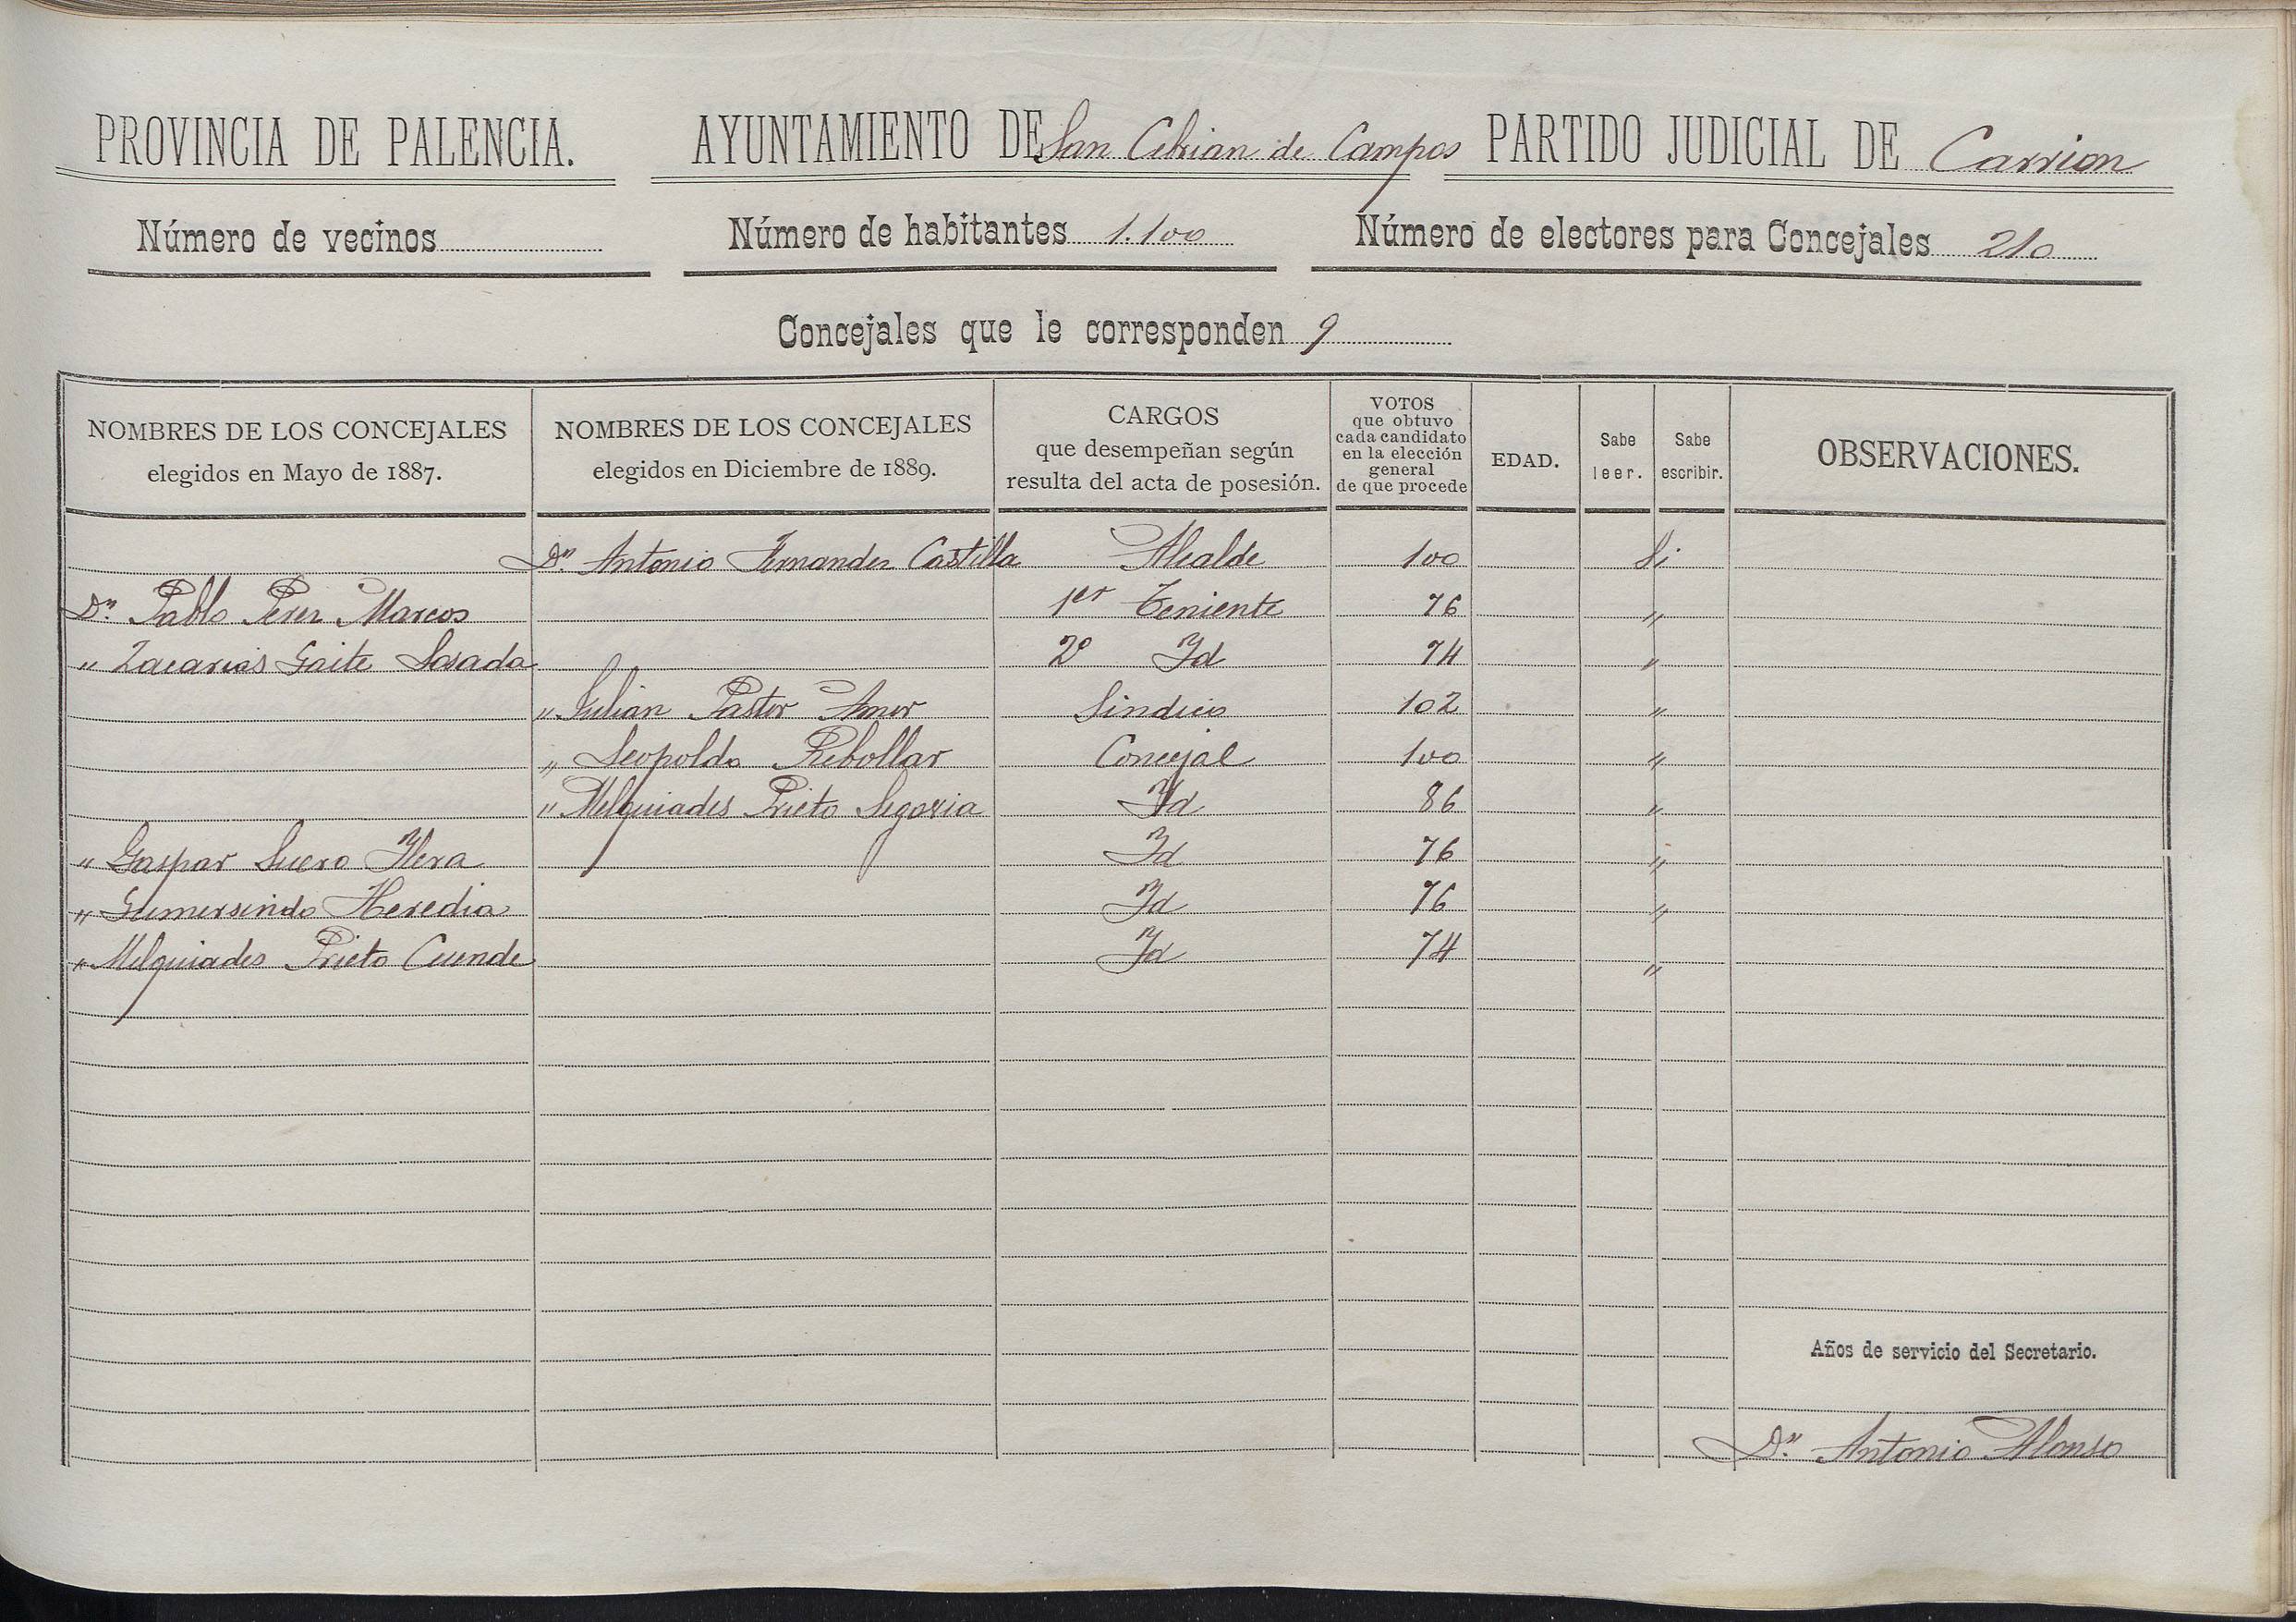 PROVINCIA DE PALENCIA. AYUNTAMIENTO DE San Cebrian de Campos PARTIDO JUDICIAL DE Carrion
Número de vecinos Número de habitantes 1.100 Número de electores para Concejales 210
Concejales que le corresponden 9
NOMBRES DE LOS CONCEJALES
elegidos en Mayo de 1887.
NOMBRES DE LOS CONCEJALES
elegidos en Diciembre de 1889.
CARGOS
que desempeñan según
resulta del acta de posesión.
VOTOS
que obtuvo
cada candidato
en la elección
general
de que procede
EDAD.
Sabe
leer.
Sabe
escribir.
OBSERVACIONES.
Dn. Antonio Fernandez Castilla Alcalde 100 Si
Dn. Pablo Perez Marcos 1er Teniente 76 "
" Zacarias Gaite Losada 2º Id 74 "
" Julian Pastor Amor Sindico 102 "
" Leopoldo Rebollar Concejal 100 "
" Melquiades Prieto Segovia Id 86 "
" Gaspar Suero Illera Id 76 "
" Gumersindo Heredia Id 76 "
" Melquiades Prieto Cuende Id 74 "
Años de servicio del Secretario.
Dn. Antonio Alonso